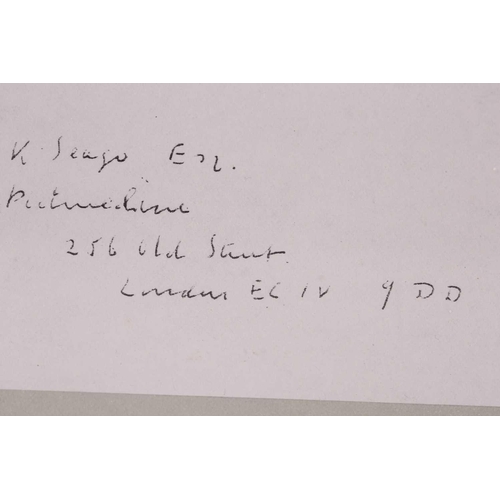 K Seago Esq.
256 Old Street
London EC1V 9DD